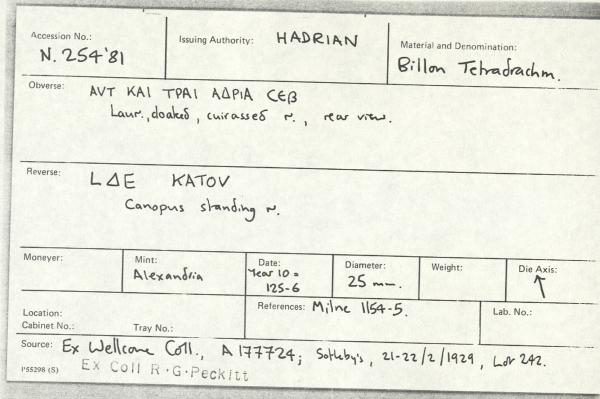 Accession No.:
N. 254'81
Issuing Authority: HADRIAN
Material and Denomination:
Billon Tetradrachm.
Obverse:
ΑVΤ ΚΑΙ ΤΡΑΙ ΑΔΡΙΑ CЄΒ
Laur., cloaked, cuirassed r., rear view.
Reverse:
L ΔΕ ΚΑΤΟV
Canopus standing r.
Moneyer:
Mint:
Alexandria
Date:
Year 10 =
125-6
Diameter:
25 mm.
Weight:
Die Axis:
↑
Location:
Cabinet No.: Tray No.:
References: Milne 1154-5.
Lab. No.:
Source: Ex Wellcome Coll., A 177724; Sotheby's, 21-22/2/1929, Lot 242.
Ex Coll R·G·Peckitt
P55298 (S)